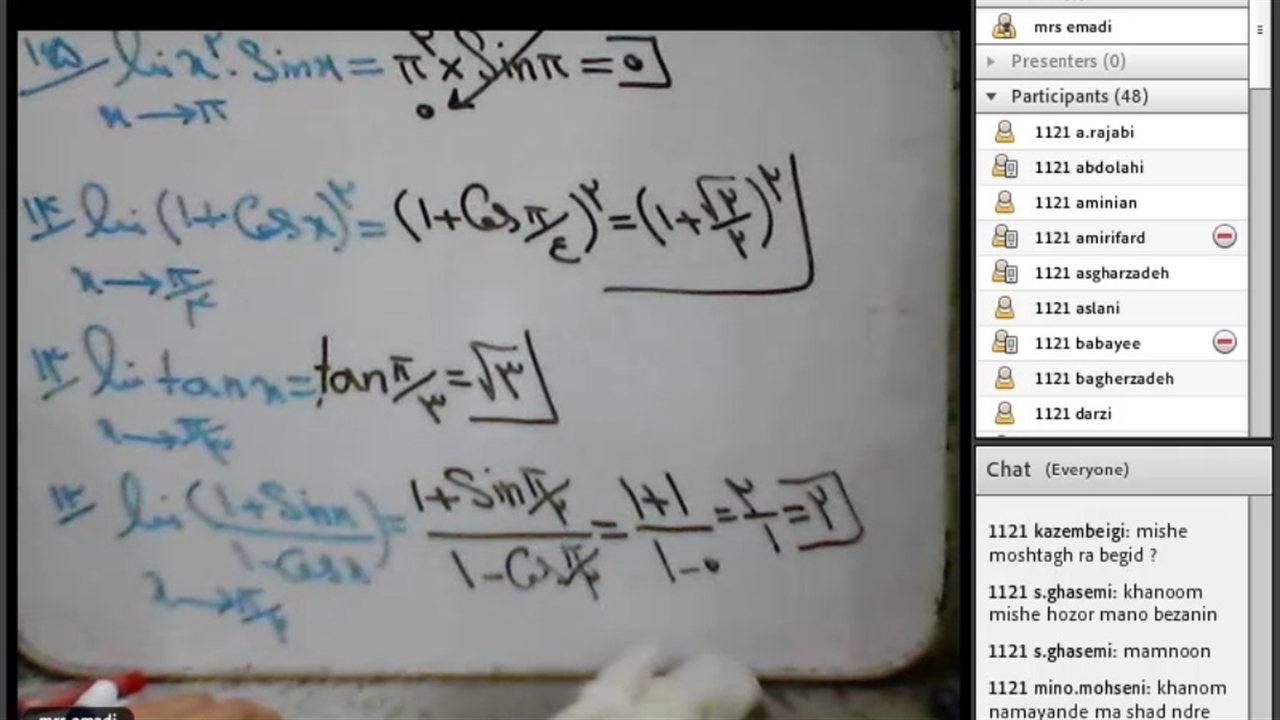 lim x². Sinx = π² × Sinπ = ۰
۰
x → π
lim (۱+Cosx)² = (۱+Cos π/۴)² = (۱+ √۲/۲)²
lim tanx = tan π/۳ = √۳
lim (۱+Sinx / ۱-Cosx) = ۱+Sin π/۲ / ۱-Cos π/۲ = ۱+۱ / ۱-۰ = ۲/۱ = ۲
x → π/۲
mrs emadi
mrs emadi
Presenters (0)
Participants (48)
1121 a.rajabi
1121 abdolahi
1121 aminian
1121 amirifard
1121 asgharzadeh
1121 aslani
1121 babayee
1121 bagherzadeh
1121 darzi
Chat (Everyone)
1121 kazembeigi: mishe
moshtagh ra begid ?
1121 s.ghasemi: khanoom
mishe hozor mano bezanin
1121 s.ghasemi: mamnoon
1121 mino.mohseni: khanom
namayande ma shad ndre